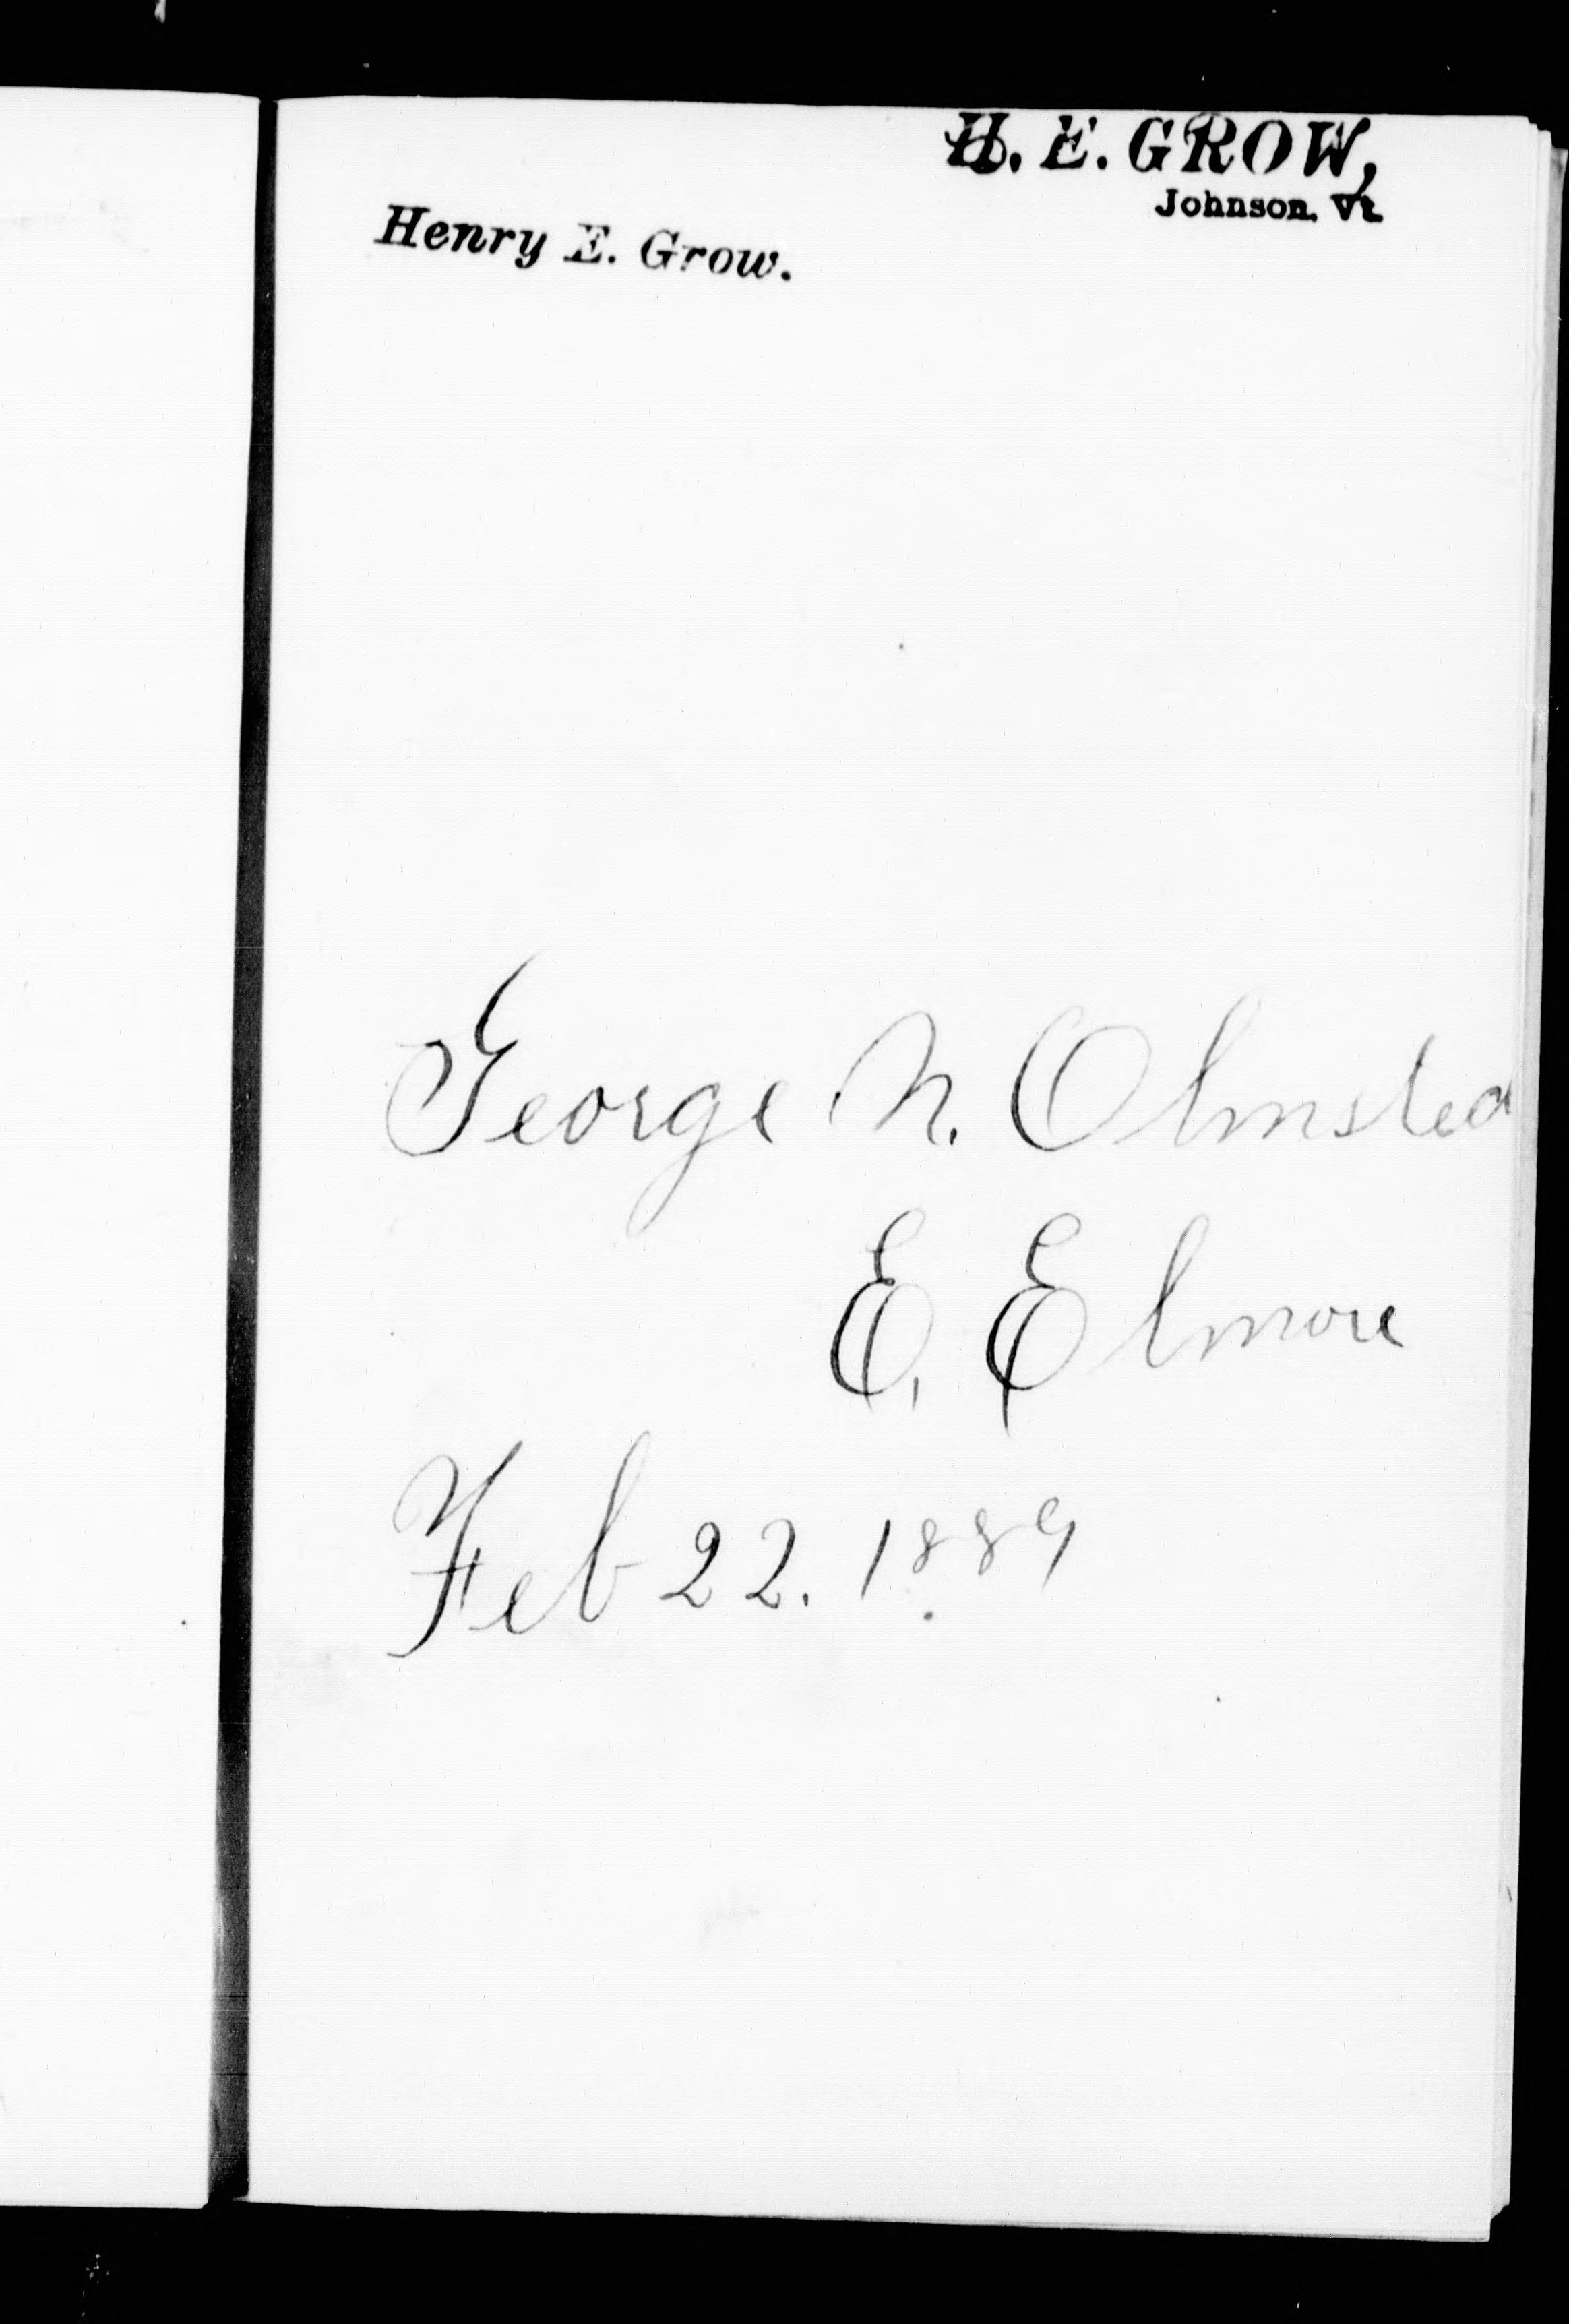 H. E. GROW,
Johnson. Vt.
Henry E. Grow.
George N. Olmsted
E. Elmore
Feb 22. 1889